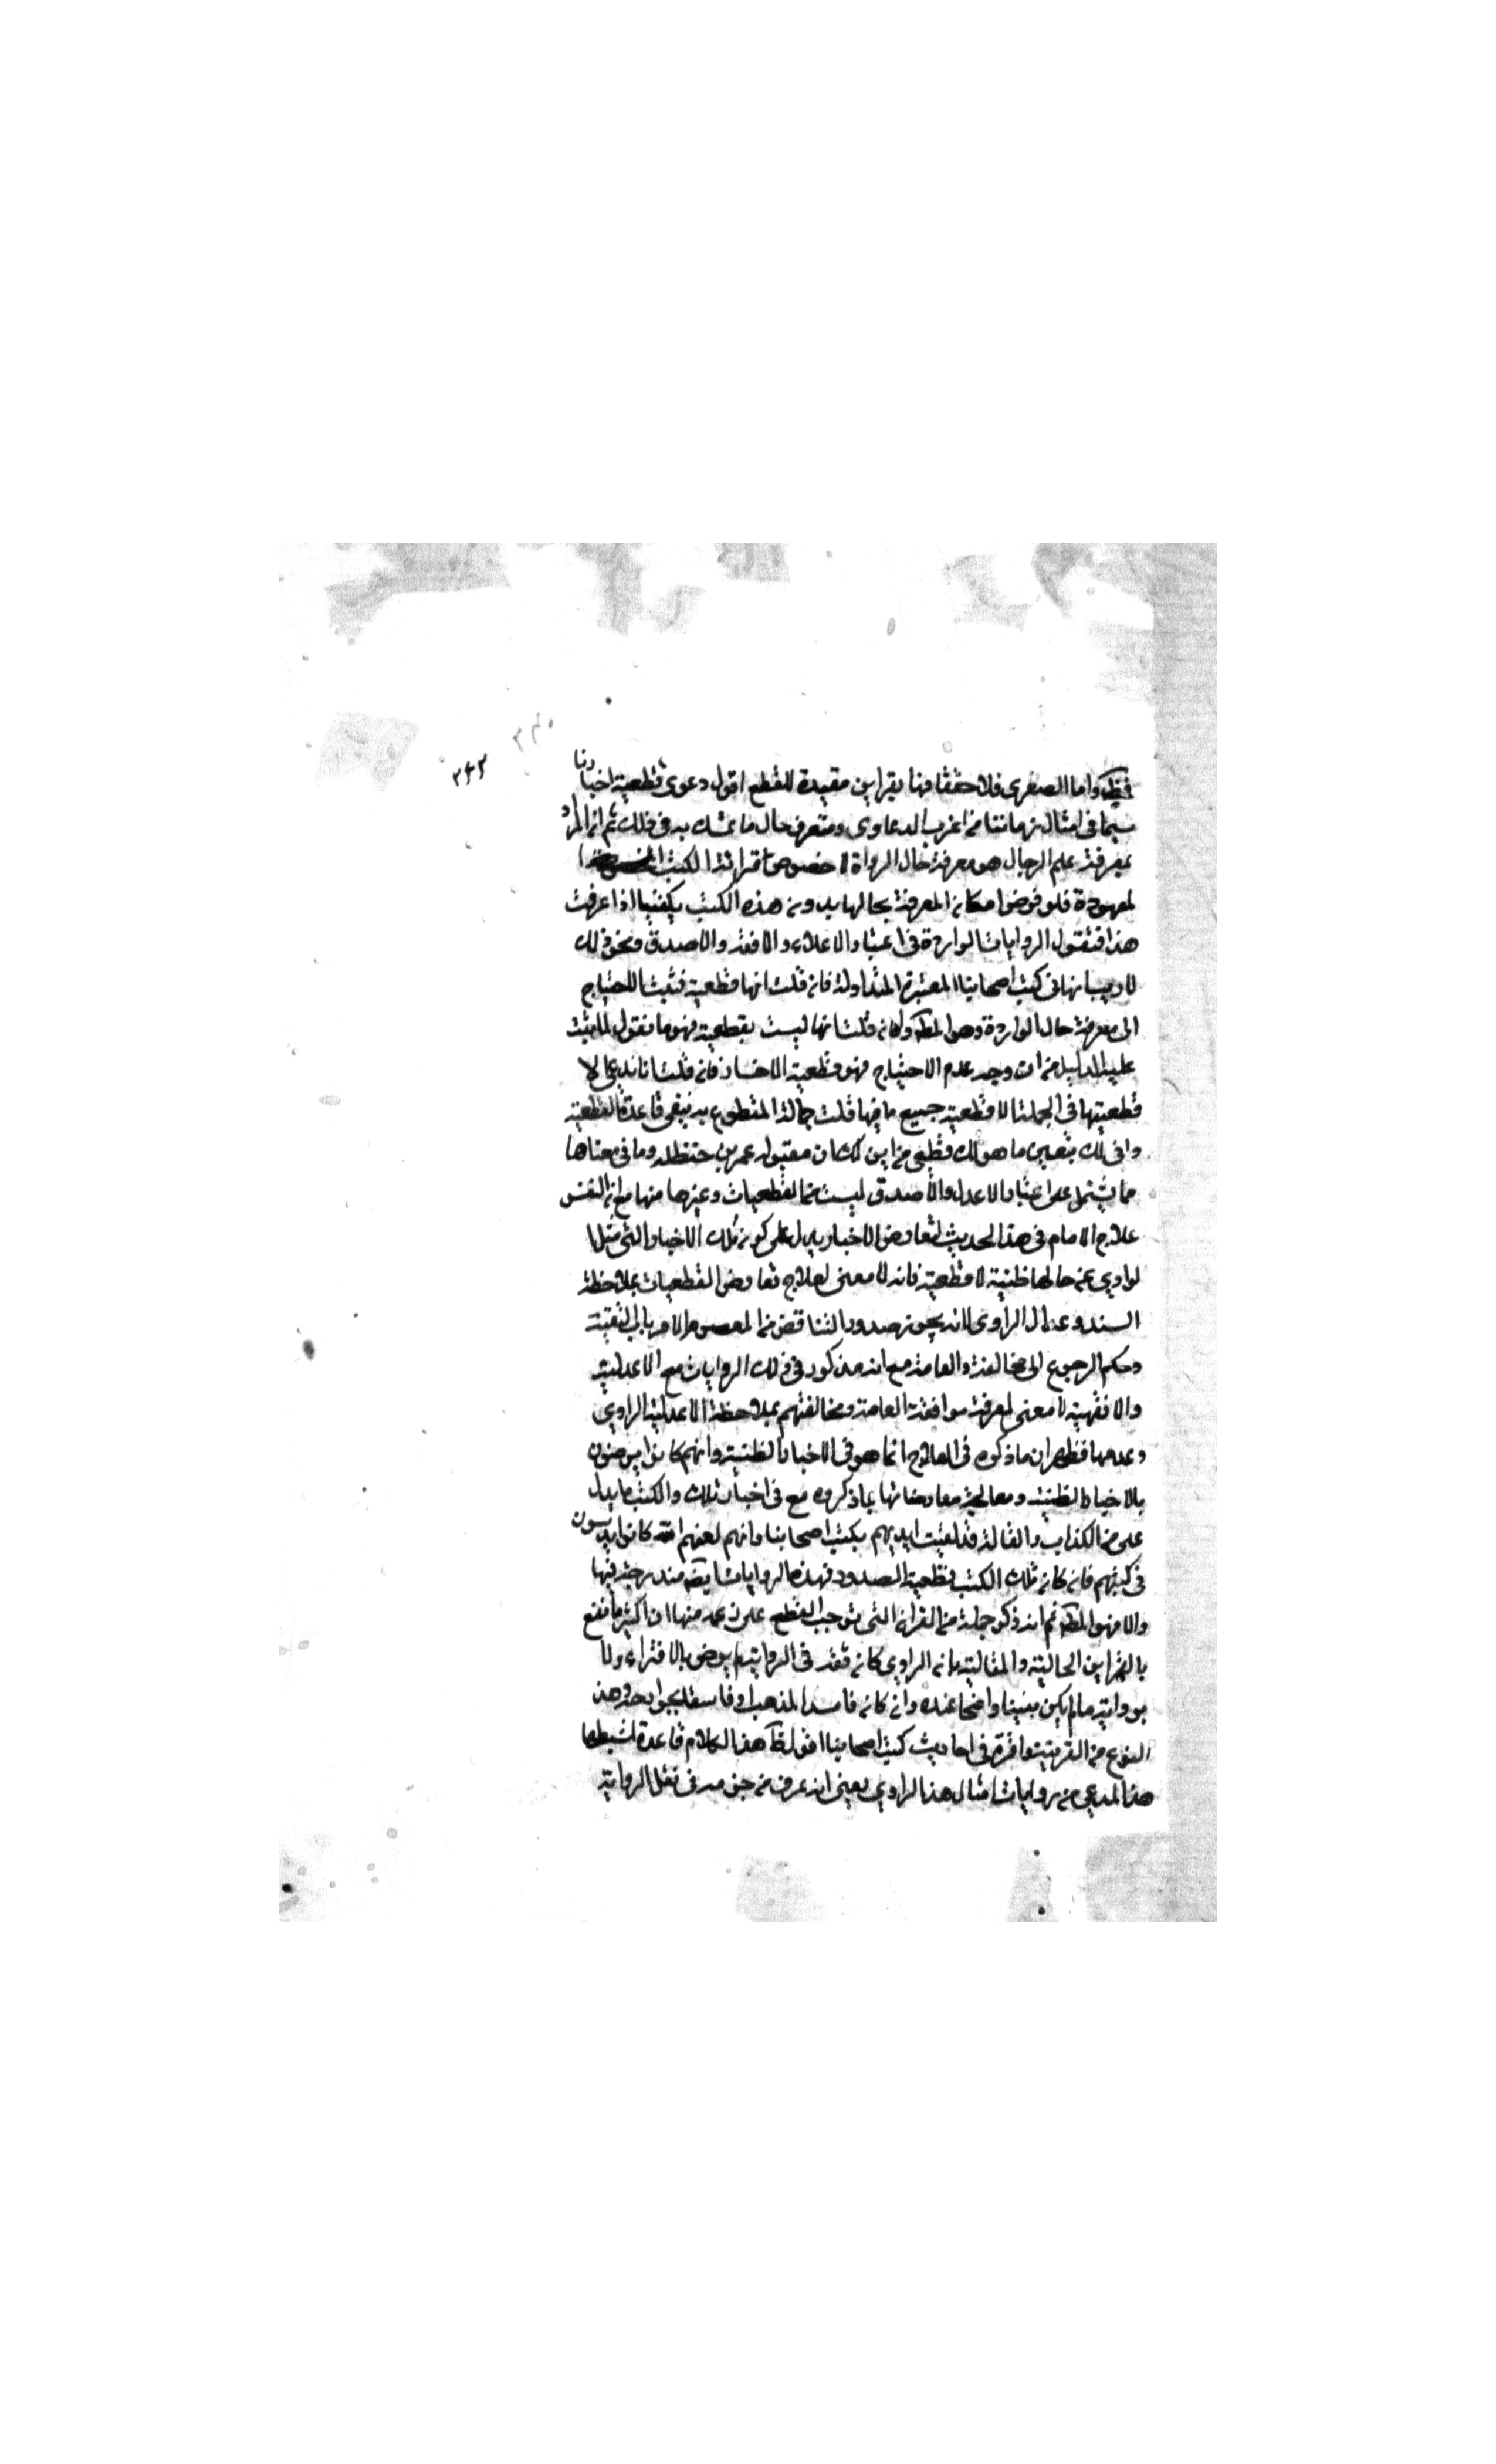 ٢٤٣
واما الصغرى فلانها محفوفة بقراين مفيدة للقطع اقول دعوى قطعية اخبارنا
سيما فى امثال زماننا من اغرب الدعاوى وستعرف حال ما تمسك به فى ذلك ثم ان المراد
بمعرفة علم الرجال هو معرفة حال الرواة لا خصوص قرائة الكتب
المعهودة فلو فرض امكان المعرفة بحالها بدون هذه الكتب يكفينا اذا عرفت
هذا فنقول الروايات الواردة فى اعتبار الاعدل والافقه والاصدق ونحو ذلك
لا ريب انها فى كتب اصحابنا المعتبرة المتداولة فان قلت انها قطعية فتثبت الاحتياج
الى معرفة حال الرواة وهو المط وان قلت انها ليست بقطعية فهو ما نقول لما يثبت
عليه الدليل من ان وجه عدم الاحتياج هو قطعية الاخبار فان قلت انا ندعى
قطعيتها فى الجملة لا قطعية جميع ما فيها قلت جهالة المقطوع به ينفى قاعدة القطعية
وانى لك بتعيين ما هو لك قطعى من اين لك ان مقبولة عمر بن حنظلة وما فى معناها
مما يشتمل على اعتبار الاعدل والاصدق ليست من القطعيات وغيرها منها مع ان نفس
علاج الامام فى هذا الحديث لتعارض الاخبار يدل على كون تلك الاخبار التى سئل
الراوى عن حالها ظنية لا قطعية فانه لا معنى لعلاج تعارض القطعيات بملاحظة
السند وعدالة الراوى لانه يجوز صدور التناقض من المعصوم الامر باب التقية
وحكم الرجوع الى مخالفة العامة مع انه مذكور فى ذلك الروايات مع الاعدلية
والافقهية لا معنى لمعرفة موافقة العامة ومخالفتهم بملاحظة الاعدلية الراوى
وعدمها فظهر ان ما ذكره فى العلاج انما هو فى الاخبار الظنية وانهم كانوا يرضون
بالاخبار الظنية ومعالجة معارضاتها بما ذكروه مع فى اخبار تلك الكتب ما يدل
على من الكذاب والقالة قد لعبت ايديهم بكتب اصحابنا وانهم لعنهم الله كانوا يدسون
فى كتبهم فان كان تلك الكتب قطعية الصدور فهذه الروايات ايضا مندرجة فيها
والا فهو المط ثم انه ذكر جملة من القراين التى توجب القطع على زعمه منها ان اكثر ما نقطع
بالقراين الحالية والمقالية بان الراوى كان ثقة فى الرواية لم يرض بالافتراء ولا
برواية ما لم يكن بينا واضحا عنده وان كان فاسد المذهب او فاسقا بجوارحه وهذا
النوع من القرينة وافرة فى احاديث كتب اصحابنا اقول هذا الكلام قاعدة
هذا المدعى من روايات امثال هذا الراوى يعنى انه عرف من فى نقل الرواية